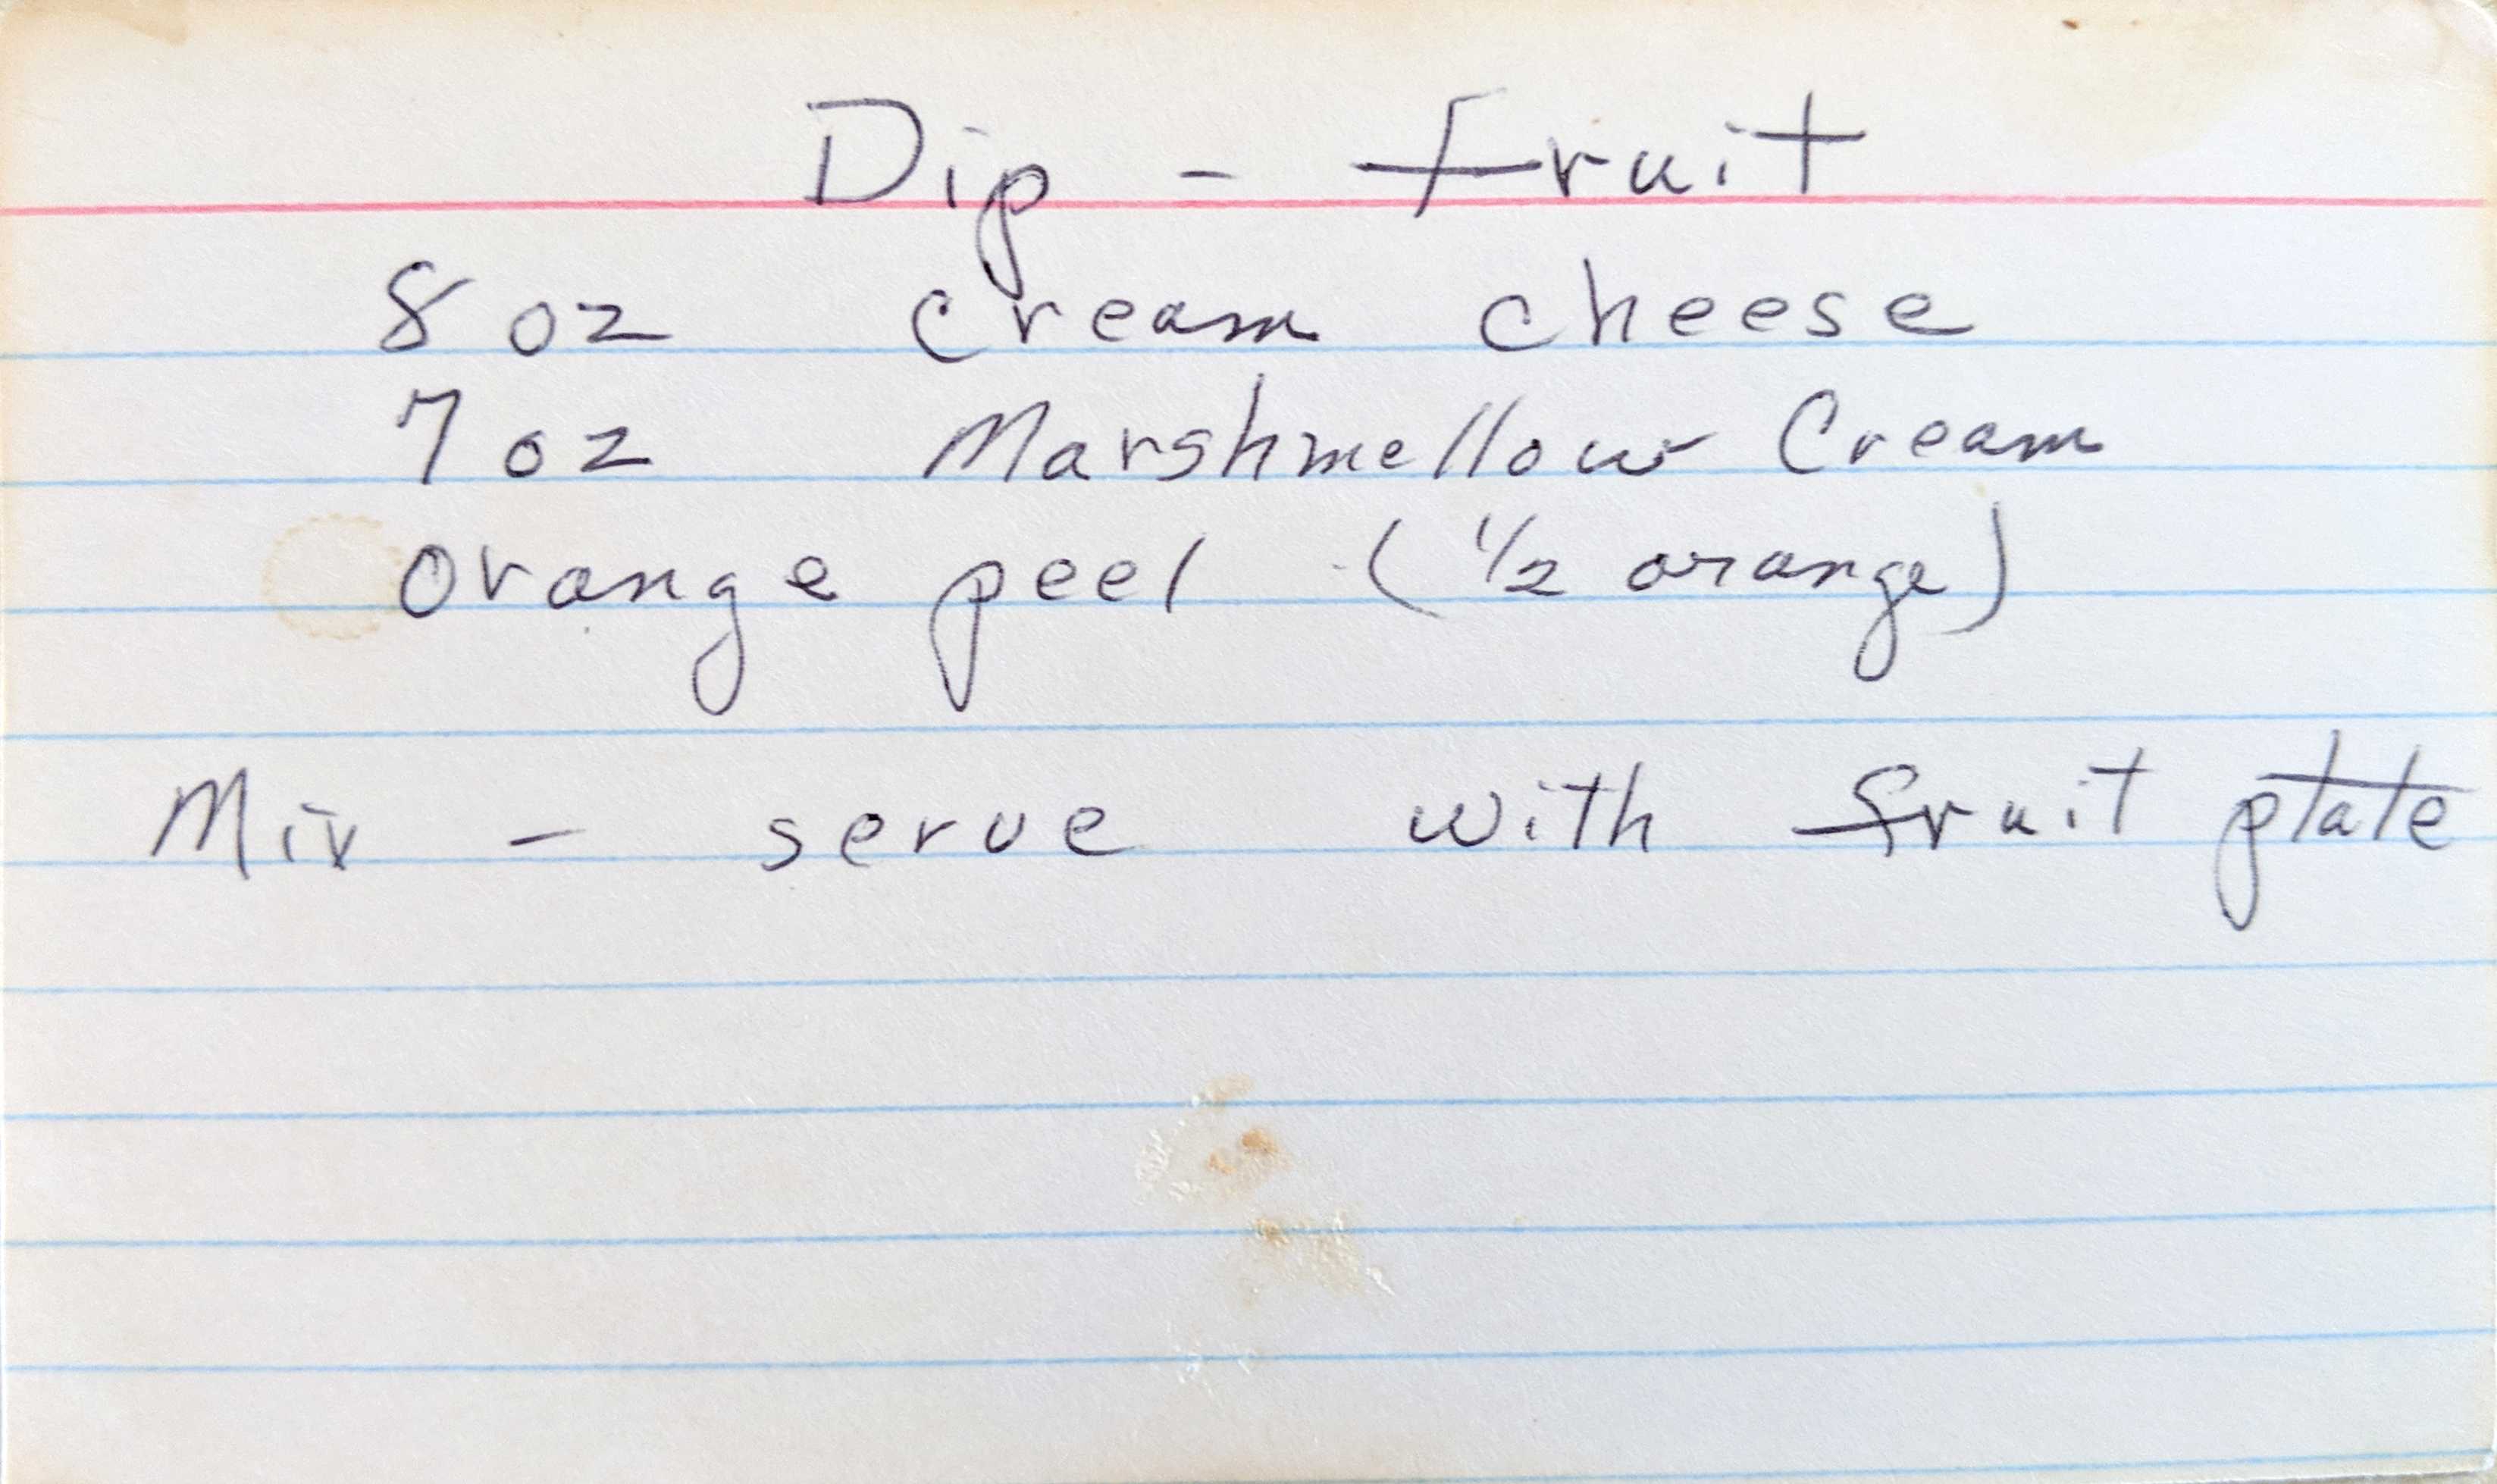 Dip - fruit
8 oz cream cheese
7 oz Marshmellow Cream
orange peel (1/2 orange)
Mix - serve with fruit plate